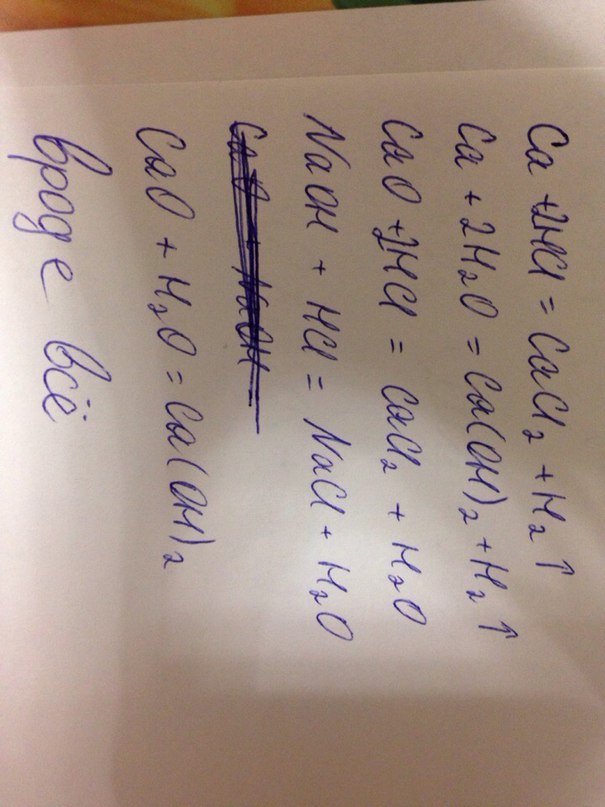 Ca + 2HCl = CaCl₂ + H₂↑
Ca + 2H₂O = Ca(OH)₂ + H₂↑
CaO + 2HCl = CaCl₂ + H₂O
NaOH + HCl = NaCl + H₂O
CaO + H₂O = Ca(OH)₂
вроде всё